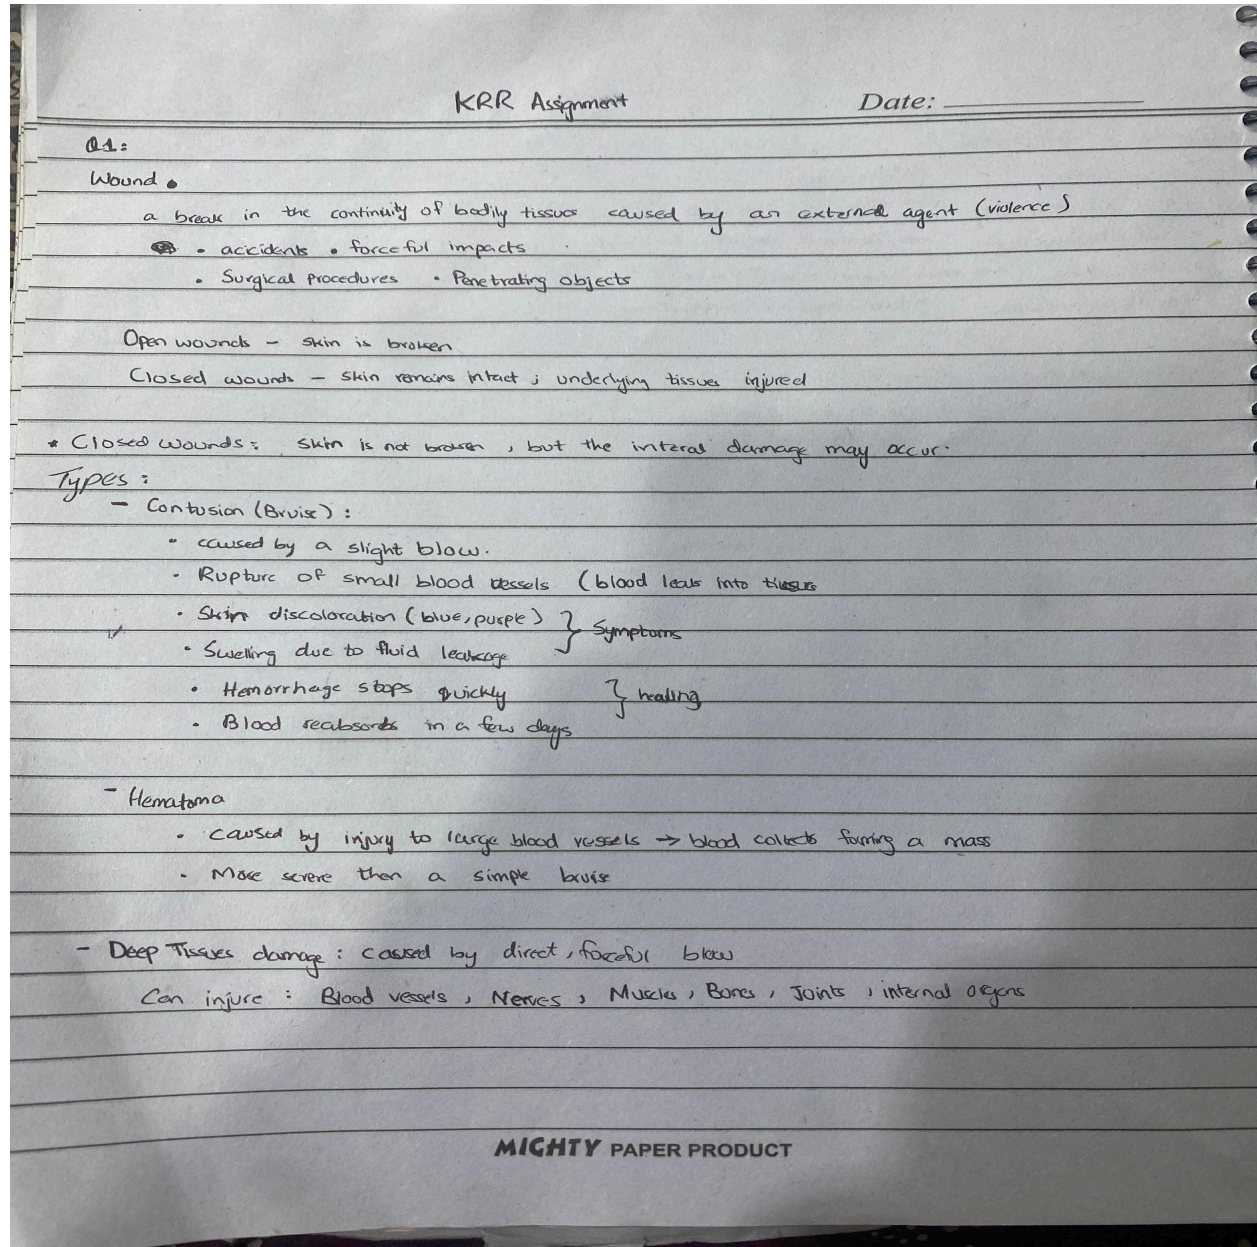 KRR Assignment Date:
Q1:
Wound •
a break in the continuity of bodily tissues caused by an external agent (violence)
• accidents • forceful impacts
• Surgical Procedures • Penetrating objects
Open wounds - skin is broken
Closed wounds - Skin remains intact ; underlying tissues injured
* Closed wounds : Skin is not broken , but the interal damage may occur.
Types :
- Contusion (Bruise) :
• caused by a slight blow.
• Rupture of small blood vessels (blood leaks into tissue
• Skin discoloration (blue, purple) } Symptoms
• Swelling due to fluid leakage
• Hemorrhage stops quickly } healing
• Blood reabsords in a few days
- Hematoma
• Caused by injury to large blood vessels → blood collects forming a mass
• More severe then a simple bruise
- Deep Tissues damage : caused by direct, forceful blow
Can injure : Blood vessels , Nerves , Muscles , Bones , Joints , internal organs
MIGHTY PAPER PRODUCT